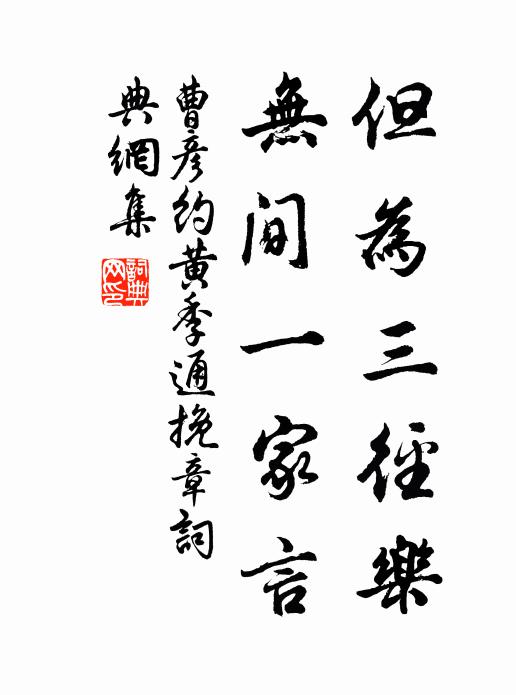 但為三徑樂
無間一家言
曹彥約黃季通挽章詞
典網集
詞典
网印